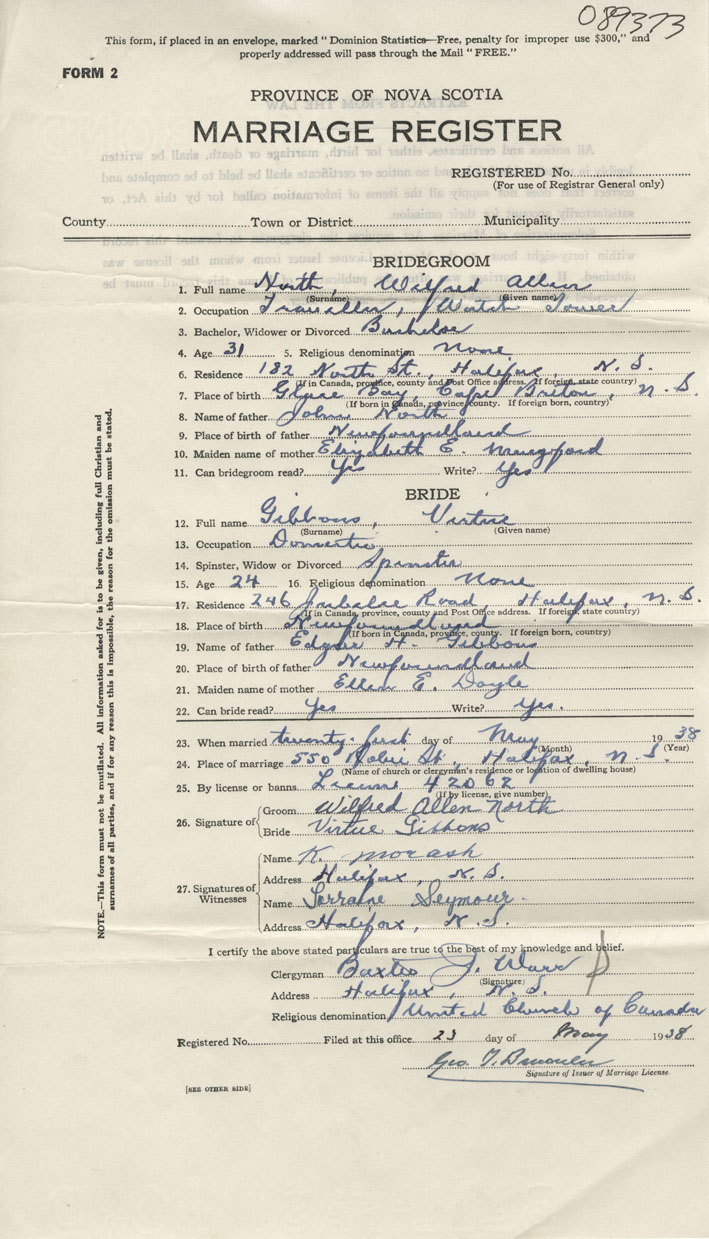 089373
This form, if placed in an envelope, marked "Dominion Statistics—Free, penalty for improper use $300," and
properly addressed will pass through the Mail "FREE."
FORM 2
PROVINCE OF NOVA SCOTIA
MARRIAGE REGISTER
REGISTERED No.
(For use of Registrar General only)
County Town or District Municipality
BRIDEGROOM
1. Full name North, Wilfred Allen
(Surname) (Given name)
2. Occupation Traveller, Watch Tower
3. Bachelor, Widower or Divorced Bachelor
4. Age 31 5. Religious denomination None
6. Residence 182 North St., Halifax, N. S.
(If in Canada, province, county and Post Office address. If foreign, state country)
7. Place of birth Glace Bay, Cape Breton, N. S.
(If born in Canada, province, county. If foreign born, country)
8. Name of father John North
9. Place of birth of father Newfoundland
10. Maiden name of mother Elizabeth E. Mungford
11. Can bridegroom read? Yes Write? Yes
BRIDE
12. Full name Gibbons, Virtue
(Surname) (Given name)
13. Occupation Domestic
14. Spinster, Widow or Divorced Spinster
15. Age 24 16. Religious denomination None
17. Residence 246 Road Halifax, N. S.
(If in Canada, province, county and Post Office address. If foreign, state country)
18. Place of birth Newfoundland
(If born in Canada, province, county. If foreign born, country)
19. Name of father Edgar H. Gibbons
20. Place of birth of father Newfoundland
21. Maiden name of mother Ellen E. Doyle
22. Can bride read? Yes Write? Yes.
23. When married twenty-first day of May 1938
(Month) (Year)
24. Place of marriage 550 Robie St., Halifax, N. S.
(Name of church or clergyman's residence or location of dwelling house)
25. By license or banns License 42062
(If by license, give number)
26. Signature of Groom Wilfred Allen North
Bride Virtue Gibbons
27. Signatures of Witnesses
Name K. Morash
Address Halifax, N. S.
Name Lorraine Seymour.
Address Halifax, N. S.
I certify the above stated particulars are true to the best of my knowledge and belief.
Clergyman Baxter J. Warr
(Signature)
Address Halifax, N. S.
Religious denomination United Church of Canada
Registered No. Filed at this office 23 day of May 1938
Geo. T.
Signature of Issuer of Marriage License
[SEE OTHER SIDE]
NOTE.—This form must not be mutilated. All information asked for is to be given, including full Christian and
surnames of all parties, and if for any reason this is impossible, the reason for the omission must be stated.